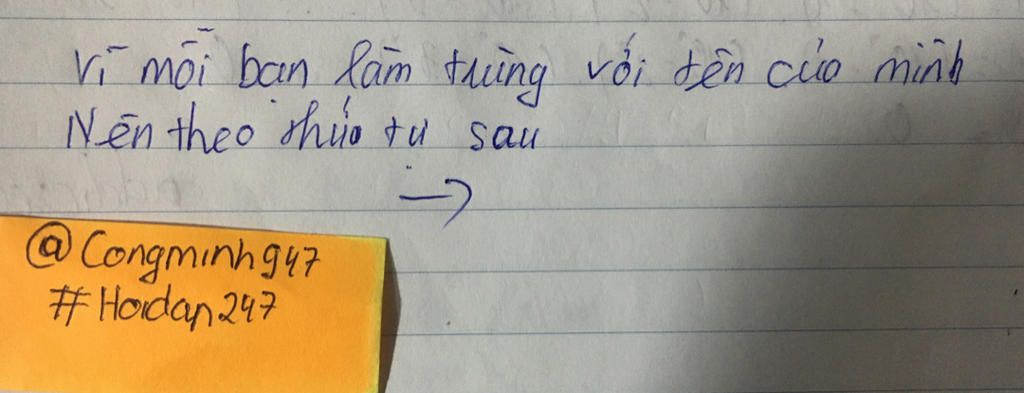 Vì mỗi bạn làm trùng với tên của mình
Nên theo thứ tự sau
→
@Congminh947
#Hoidap247